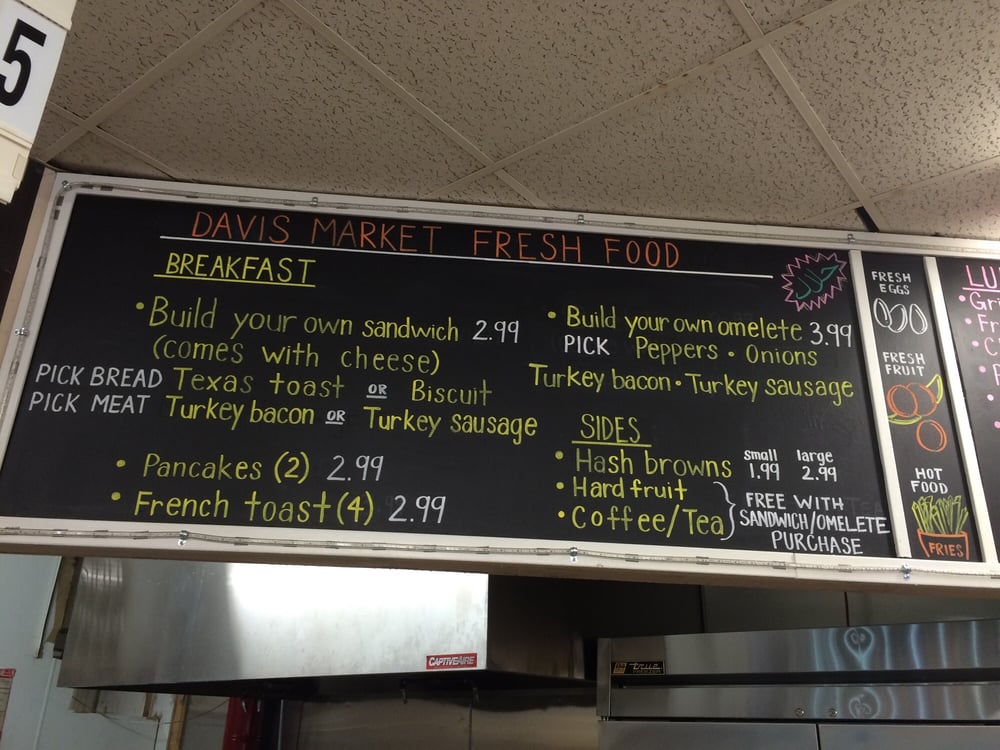 5
DAVIS MARKET FRESH FOOD
حلال
BREAKFAST
• Build your own sandwich 2.99
(comes with cheese)
PICK BREAD Texas toast OR Biscuit
PICK MEAT Turkey bacon OR Turkey sausage
• Pancakes (2) 2.99
• French toast (4) 2.99
• Build your own omelete 3.99
PICK Peppers • Onions
Turkey bacon • Turkey sausage
SIDES
small large
• Hash browns 1.99 2.99
• Hard fruit
• Coffee/Tea
FREE WITH
SANDWICH/OMELETE
PURCHASE
FRESH
EGGS
FRESH
FRUIT
HOT
FOOD
FRIES
LU
• Gr
• Fr
CAPTIVEAIRE
true